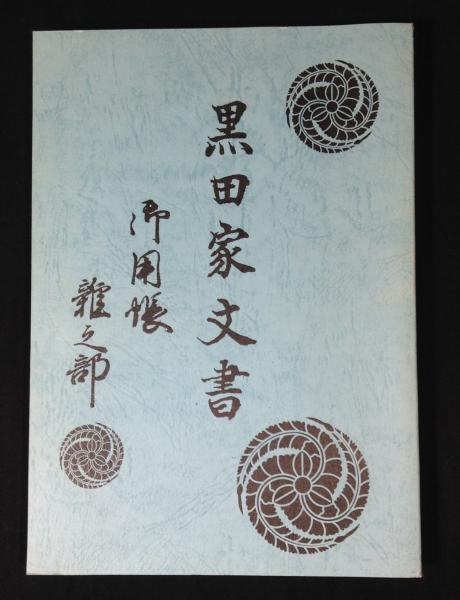 黒田家文書
御用帳
雑之部